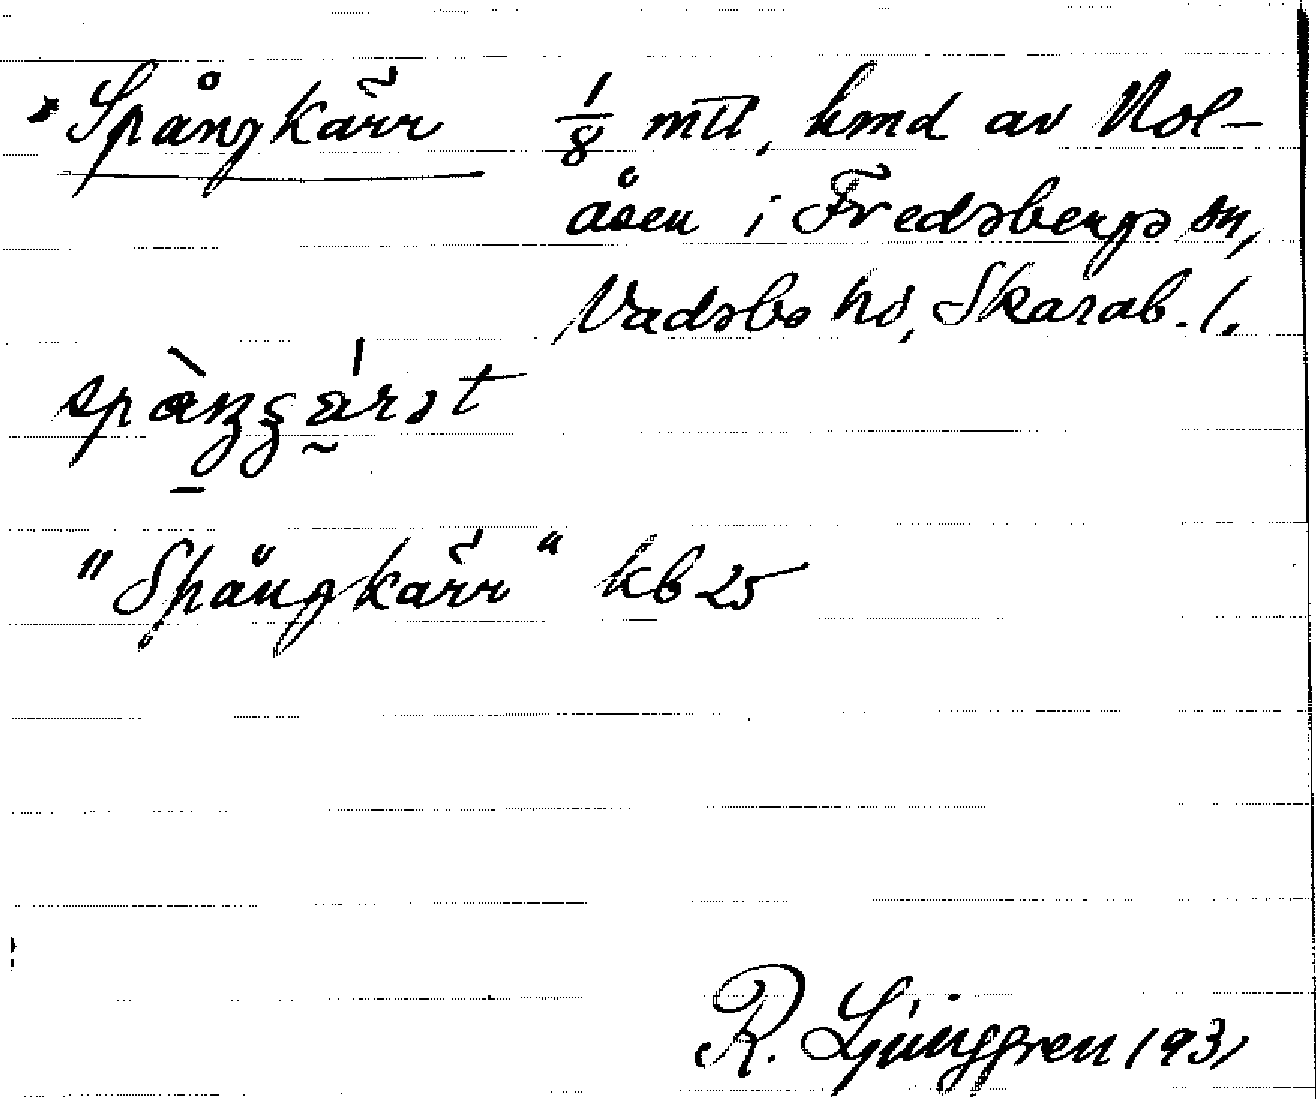 Spångkärr 1/8 mtl, hmd av Nol-
åsen i Fredsbergs sn,
Vadsbo hd, Skarab. l.
"Spångkärr" kb 25
R. Ljunggren 1931